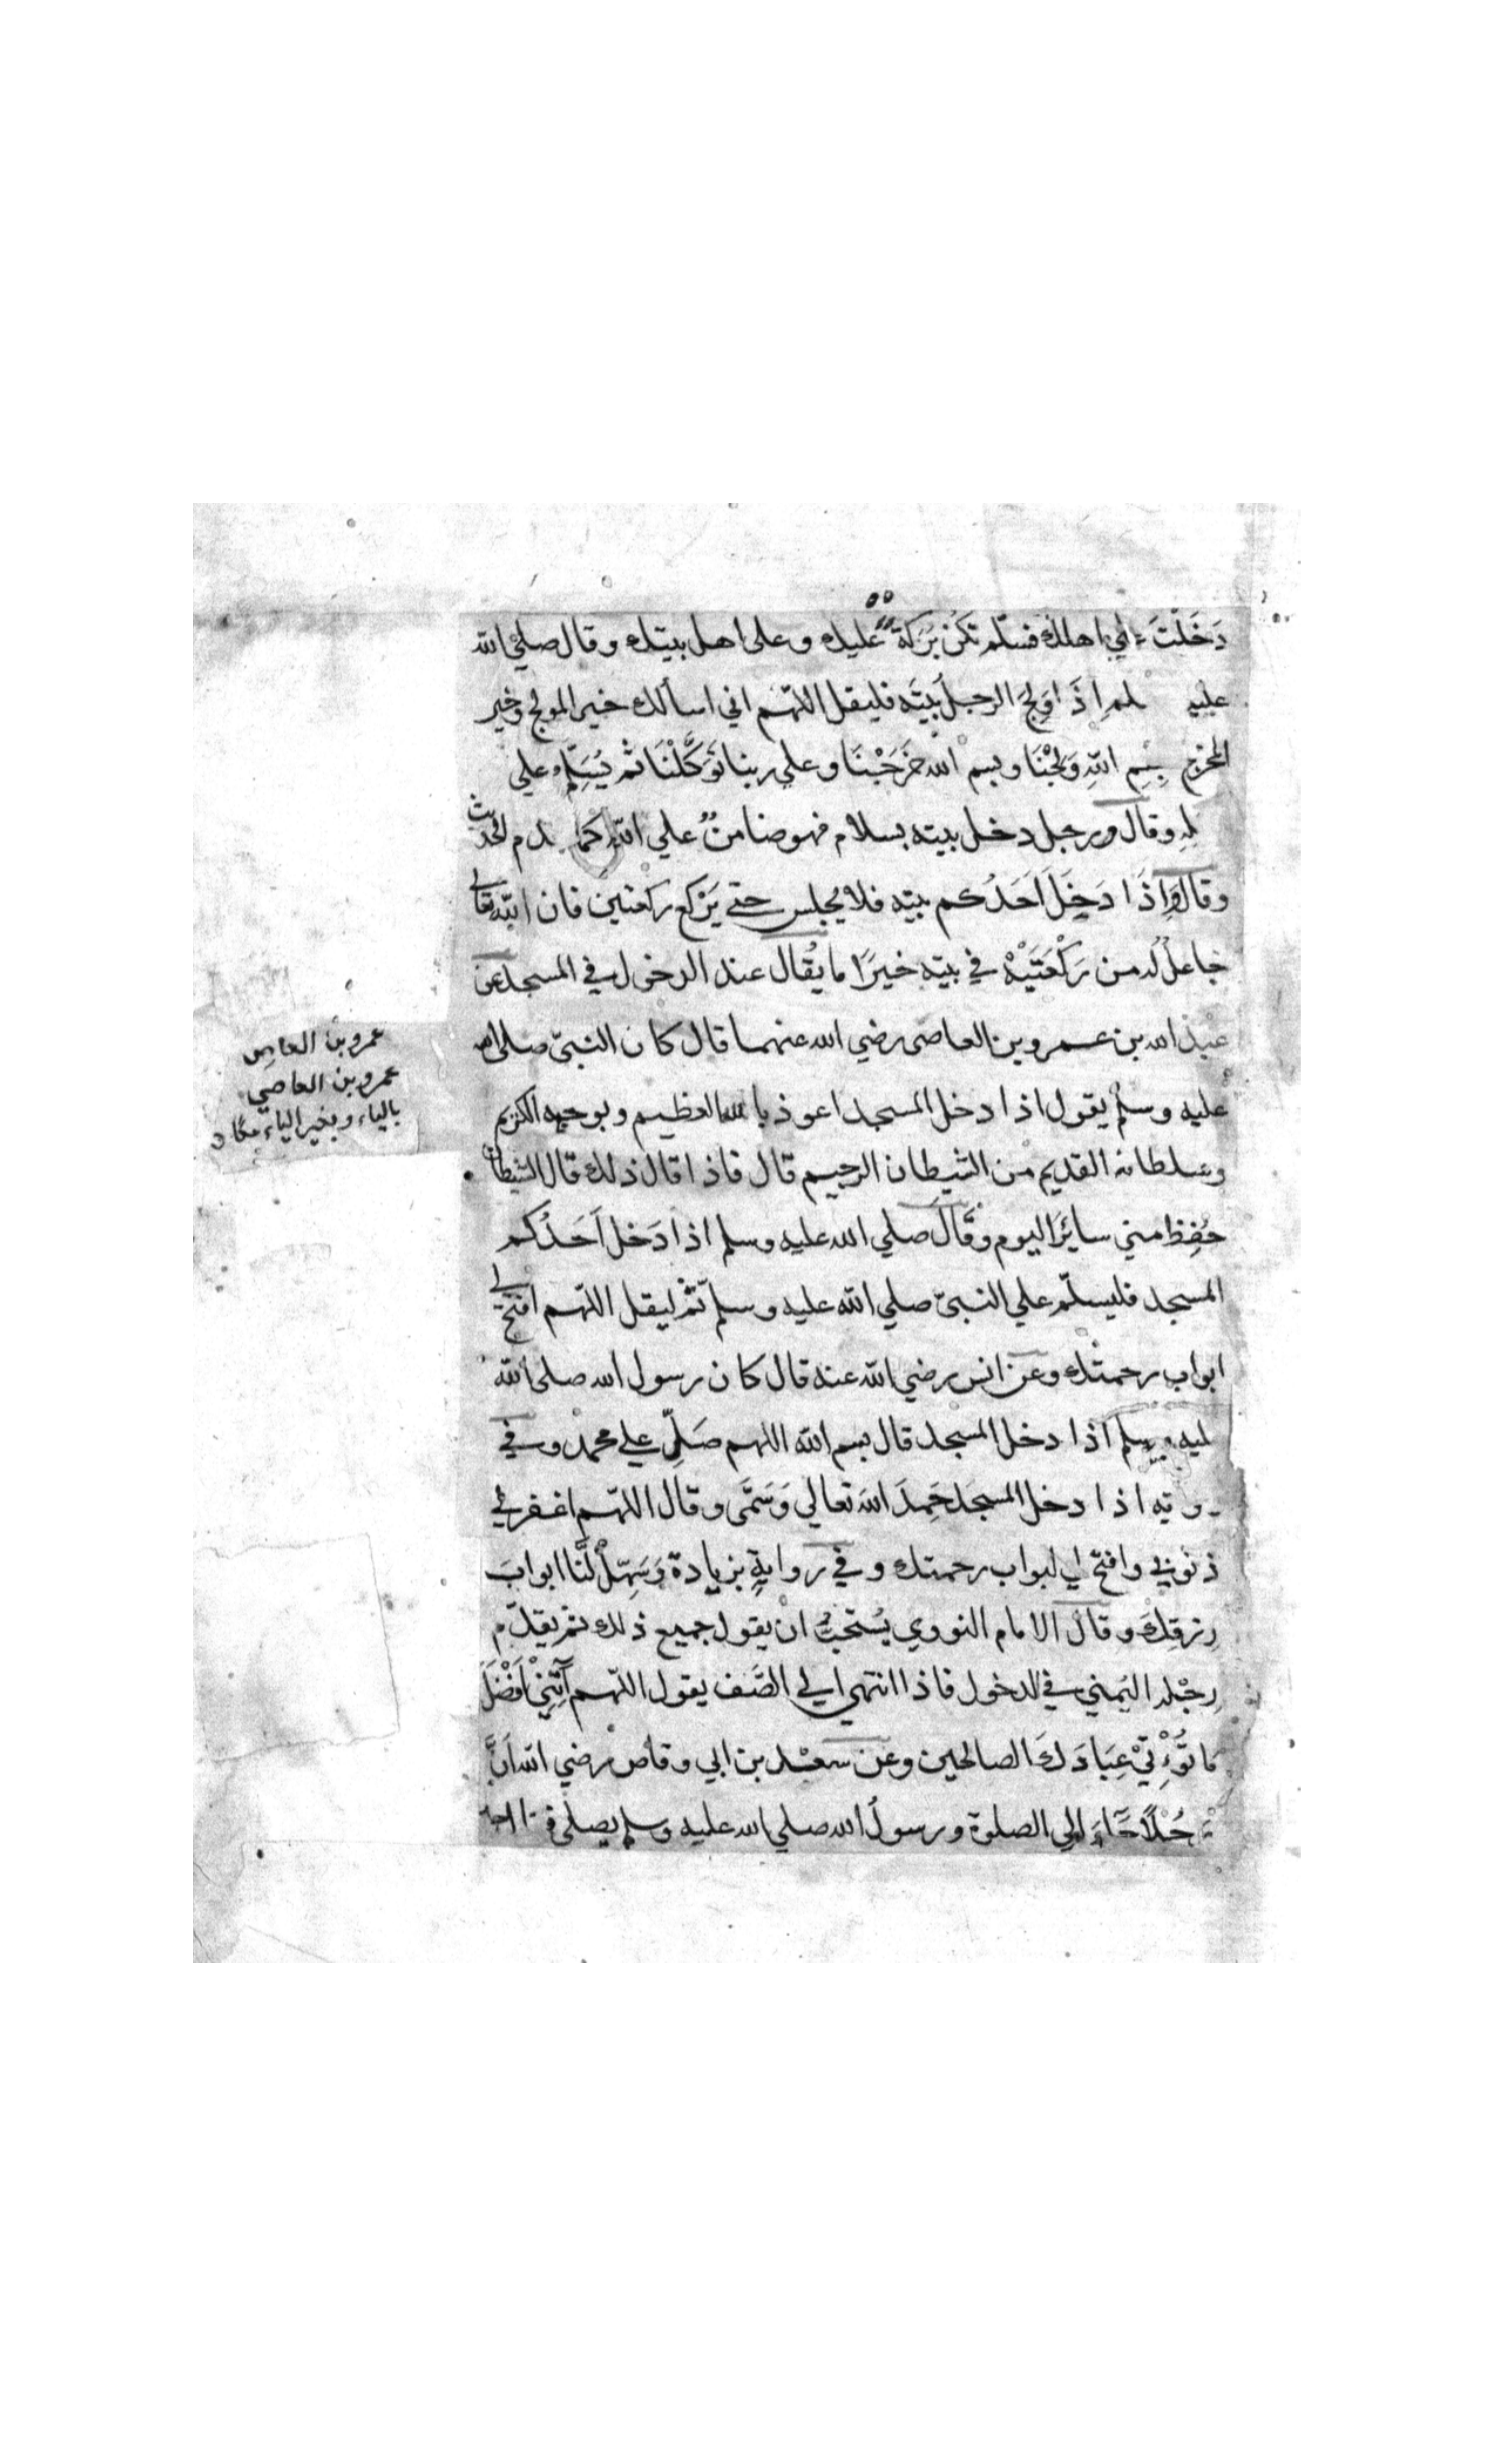 دَخَلْتَ الي اهلك فسلّم تكن بَرَكَة عليك وعلى اهل بيتك وقال صلي الله
عليه لم اِذَا وَلَجَ الرجل بَيْتَه فليقل اللهّم اني اسألك خير المولج وخير
المخرج بِسْمِ اللهِ وَلَجْنَا وبسم الله خَرَجْنَا وعلي ربنا تَوَكَّلْنَا ثم يُسَلِّم علي
لهِ وقال ورجل دخل بيته بسلام فهو ضامنٌ علي الله كما الحديث
وقال وَاِذَا دَخَلَ اَحَدُكم بيته فلا يجلس حتي يَرْكع ركعتين فان الله تعالى
جاعلٌ له من رَكْعَتَيْهْ في بيته خيرًا ما يُقال عند الدخول في المسجد عن
عبد الله بن عمرو بن العاصى رضي الله عنهما قال كان النبيّ صلى الله
عليه وسلم يقول اذا دخل المسجد اعوذ بالله العظيم وبوجهه الكريم
وسلطانه القديم من الشيطان الرجيم قال فاذا قال ذلك قال الشيطان
حُفِظ مني سائرَ اليوم وقَالَ صلي الله عليه وسلم اذا دَخل اَحَدُكم
المسجد فليسلّم علي النبيّ صلي الله عليه وسلم ثم ليقل اللهّم افتح لي
ابواب رحمتك وعن انس رضي الله عنه قال كان رسول الله صلى الله
ليه وسلم اذا دخل المسجد قال بسم الله اللهم صَلِّ علي محمد وفي
وته اذا دخل المسجدَ حَمِدَ اللهَ تعالي وَسَمَّى وقال اللهّم اغفر لي
ذنوبي وافتح لي ابواب رحمتك وفي روايةٍ بزيادة وَسَهِّلْ لَنَا ابوابَ
رِزقِكَ وقال الامام النووي يُستحبُّ ان يقول جميع ذلك ثم يقدّم
رِجْله اليَمني في الدخول فاذا انتهي الي الصَّف يقول اللهّم آتِنِيْ اَفْضَلَ
مَا تُؤْتِيْ عِبَادَكَ الصالحين وعن سعْد بن ابي وقاص رضي الله اَنَّ
جُلًا جَاءَ الي الصلوة ورسول الله صلي الله عليه وسلم يصلي
عمرو بن العاصِ
عمرو بن العاصي
بالياء وبغير الياء